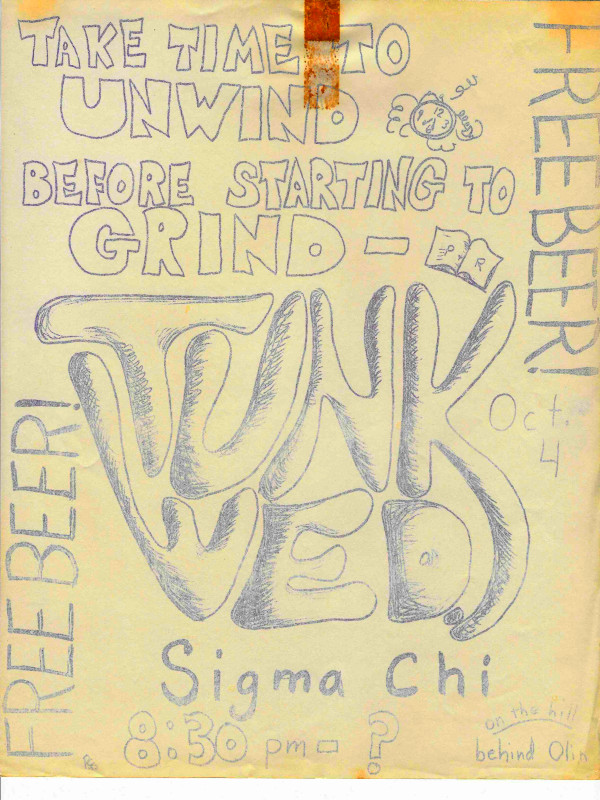 TAKE TIME TO
UNWIND
BEFORE STARTING TO
GRIND —
P R
TUNK
WED
Oct.
4
FREE BEER!
FREE BEER!
Sigma Chi
8:30 pm - ?
on the hill
behind Olin